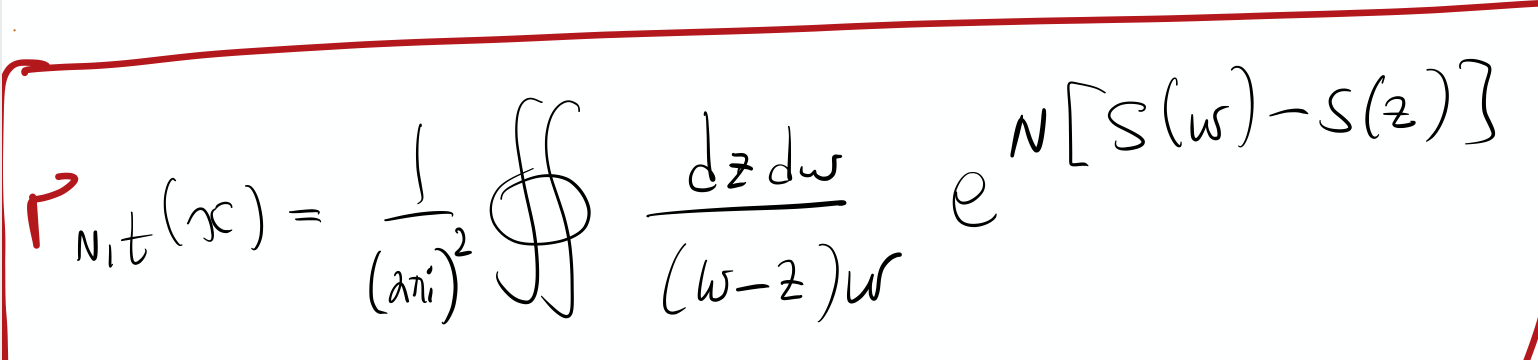 r_{N,t}(x) = \frac{1}{(2πi)^2} \oiint \frac{dz dw}{(w-z)w} e^{N[S(w)-S(z)]}